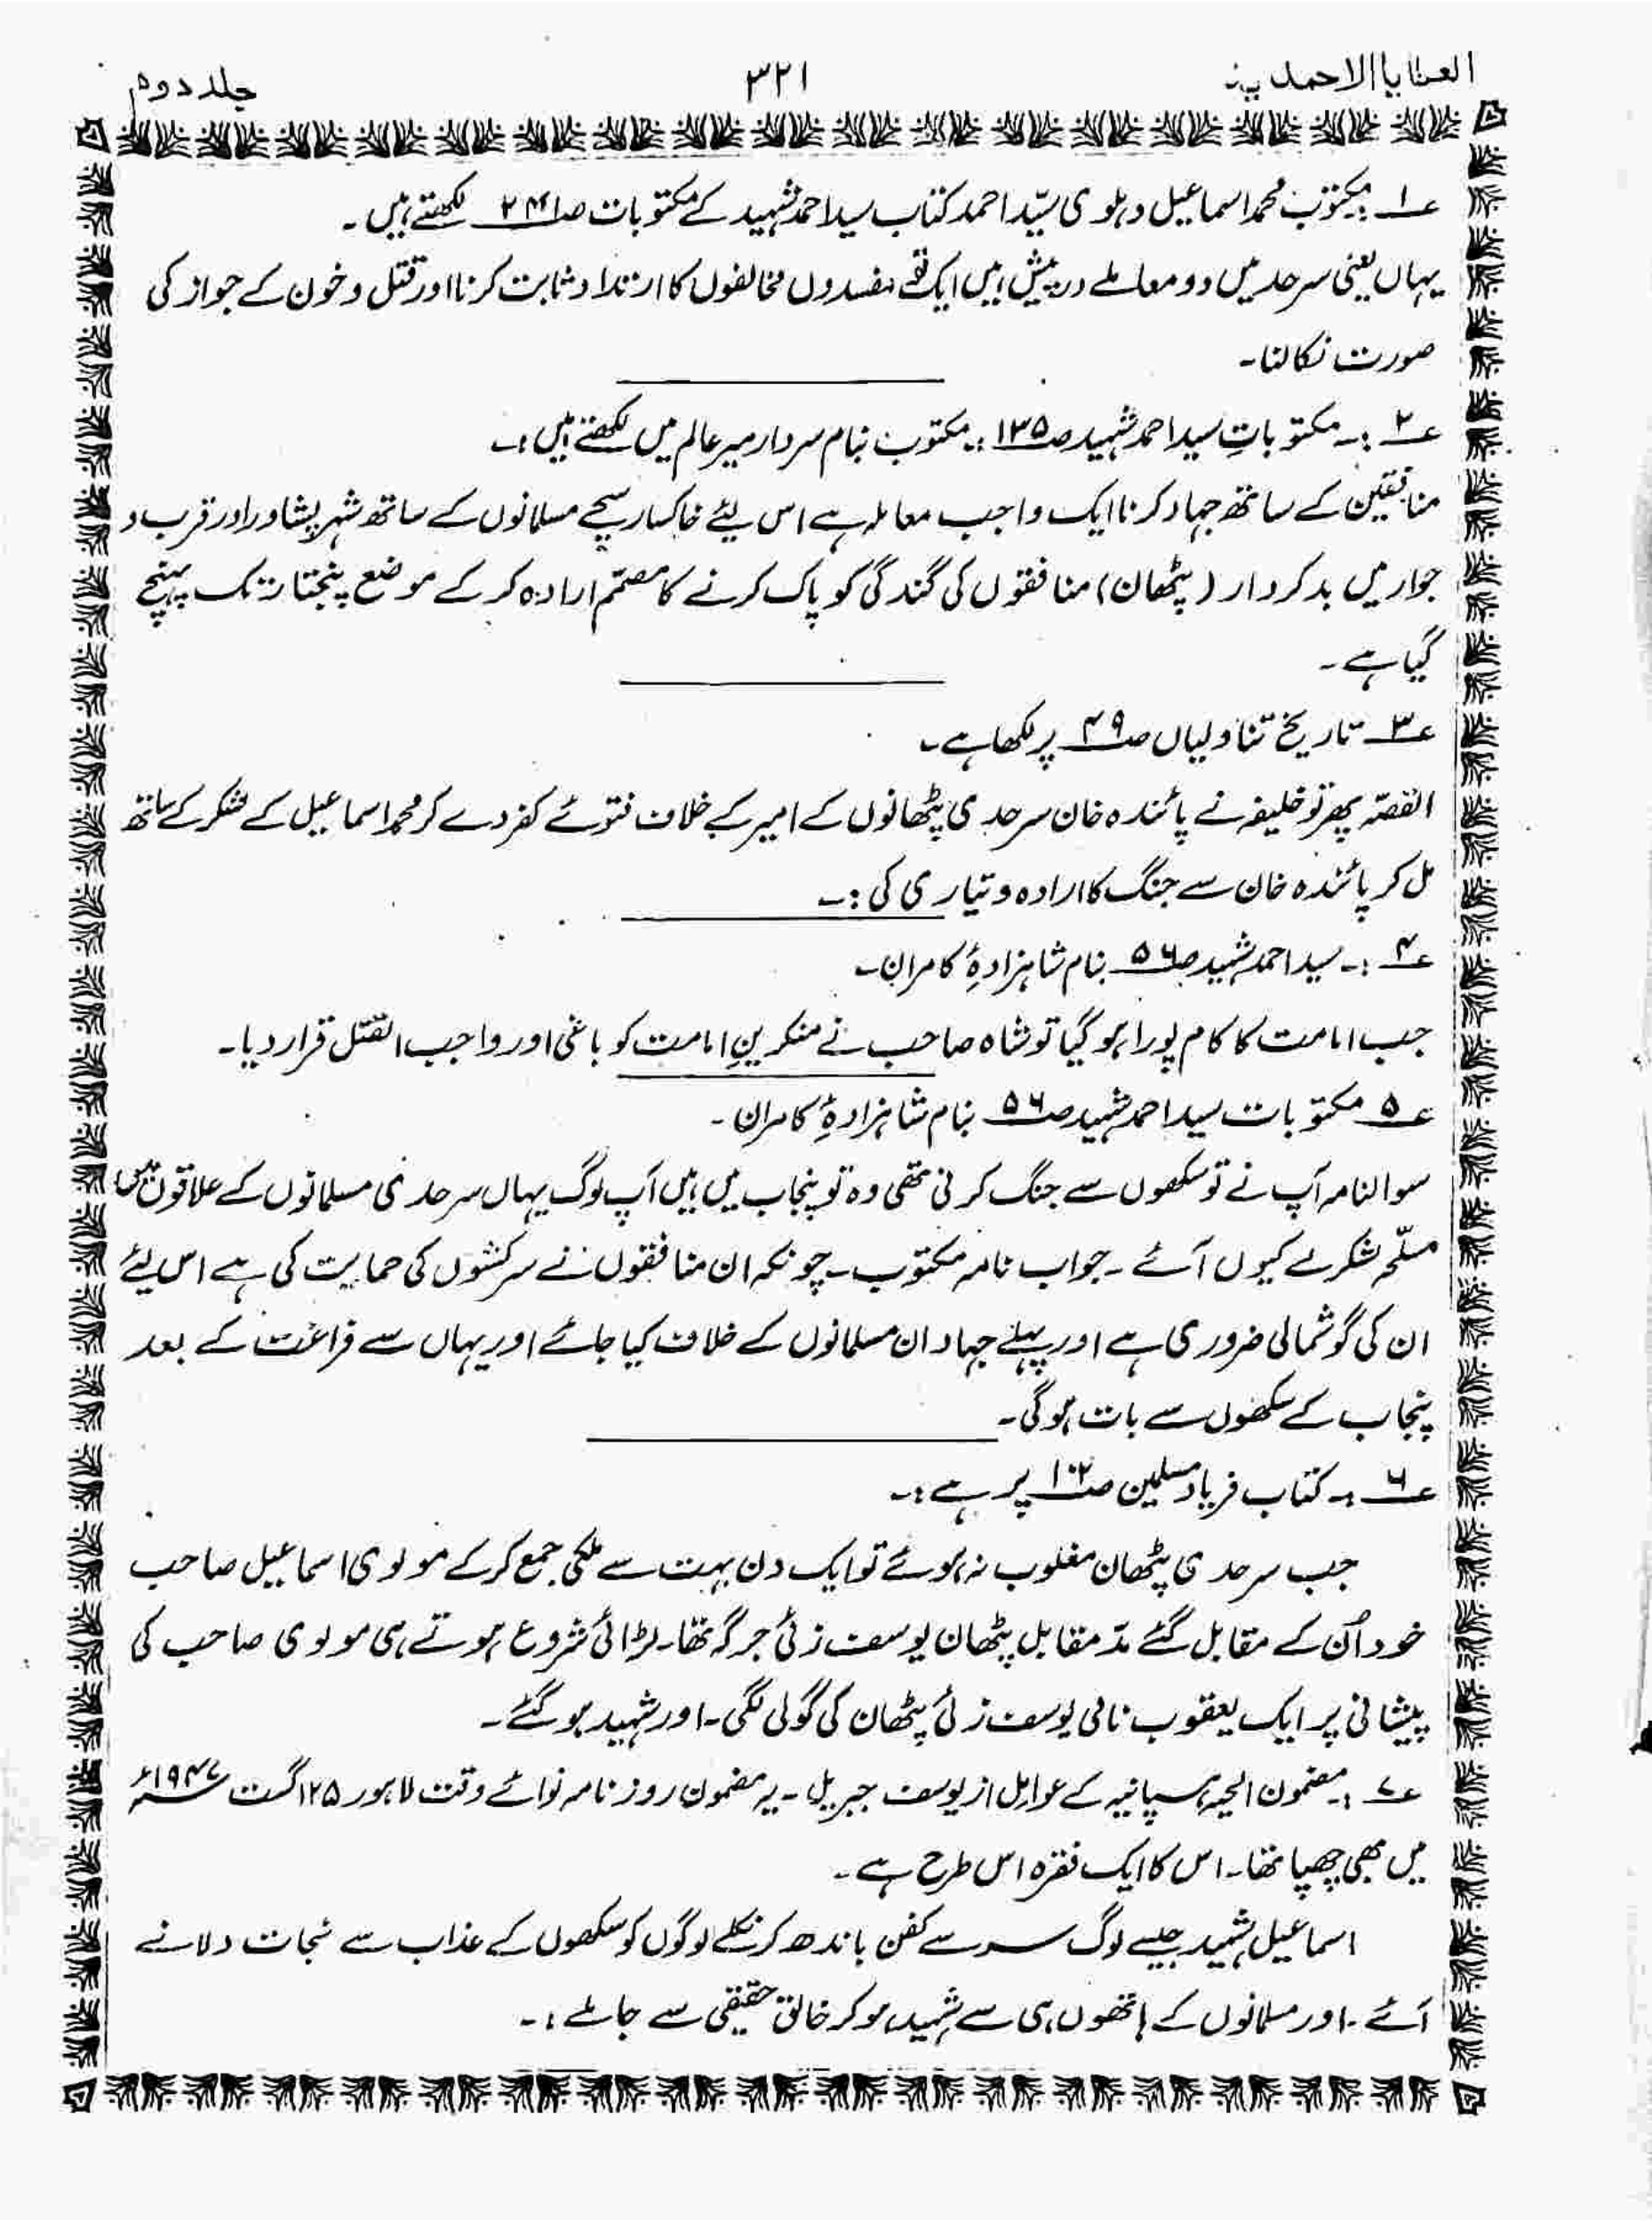 العطایا الاحمدیہ ۳۲۱ جلد دوم
ع۱ :۔ مکتوب محمد اسماعیل دہلوی سیّد احمد کتاب سید احمد شہید کے مکتوبات ص۲۴۱ لکھتے ہیں۔
یہاں یعنی سرحد میں دو معاملے درپیش ہیں ایک تو مفسدوں مخالفوں کا ارتداد ثابت کرنا اور قتل و خون کے جواز کی
صورت نکالنا۔
ع۲ :۔ مکتوباتِ سید احمد شہید ص۱۳۵ :۔ مکتوب بنام سردار میر عالم میں لکھتے ہیں :۔
منافقین کے ساتھ جہاد کرنا ایک واجب معاملہ ہے اس لیئے خاکسار سچے مسلمانوں کے ساتھ شہر پشاور اور قرب و
جوار میں بدکردار (پٹھان) منافقوں کی گندگی کو پاک کرنے کا مصمّم ارادہ کر کے موضع پنجتار تک پہنچ
گیا ہے۔
ع۳ تاریخ تناولیاں ص۴۹ پر لکھا ہے۔
القصّہ پھر تو خلیفہ نے پائندہ خان سرحدی پٹھانوں کے امیر کے خلاف فتوئے کفر دے کر محمد اسماعیل کے لشکر کے ساتھ
مل کر پائندہ خان سے جنگ کا ارادہ و تیاری کی :۔
ع۴ :۔ سید احمد شہید ص۵۶ بنام شاہزادۂِ کامران۔
جب امامت کا کام پورا ہو گیا تو شاہ صاحب نے منکرینِ امامت کو باغی اور واجب القتل قرار دیا۔
ع۵ مکتوبات سید احمد شہید ص۵۶ بنام شاہزادۂِ کامران۔
سوالنامہ آپ نے تو سکھوں سے جنگ کرنی تھی وہ تو پنجاب میں ہیں آپ لوگ یہاں سرحدی مسلمانوں کے علاقوں میں
مسلّحہ لشکر لے کیوں آئے ۔ جواب نامہ مکتوب ۔ چونکہ ان منافقوں نے سرکشوں کی حمایت کی ہے اس لیئے
ان کی گوشمالی ضروری ہے اور پہلے جہاد ان مسلمانوں کے خلاف کیا جائے اور یہاں سے فراغت کے بعد
پنجاب کے سکھوں سے بات ہوگی۔
ع۶ :۔ کتاب فریاد مسلمین ص۱۰۲ پر ہے :۔
جب سرحدی پٹھان مغلوب نہ ہوئے تو ایک دن بہت سے ملکی جمع کر کے مولوی اسماعیل صاحب
خود اُن کے مقابل گئے مدّ مقابل پٹھان یوسف زئی جرگہ تھا۔ لڑائی شروع ہوتے ہی مولوی صاحب کی
پیشانی پر ایک یعقوب نامی یوسف زئی پٹھان کی گولی لگی۔ اور شہید ہو گئے۔
ع۷ :۔ مضمون ہسپانیہ کے عوامل از یوسف جبریل ۔ یہ مضمون روزنامہ نوائے وقت لاہور ۲۵ اگست ۱۹۴۷ء
میں بھی چھپا تھا۔ اس کا ایک فقرہ اس طرح ہے۔
اسماعیل شہید جیسے لوگ سر سے کفن باندھ کر نکلے لوگوں کو سکھوں کے عذاب سے نجات دلانے
آئے ۔ اور مسلمانوں کے ہاتھوں ہی سے شہید ہو کر خالق حقیقی سے جا ملے :۔